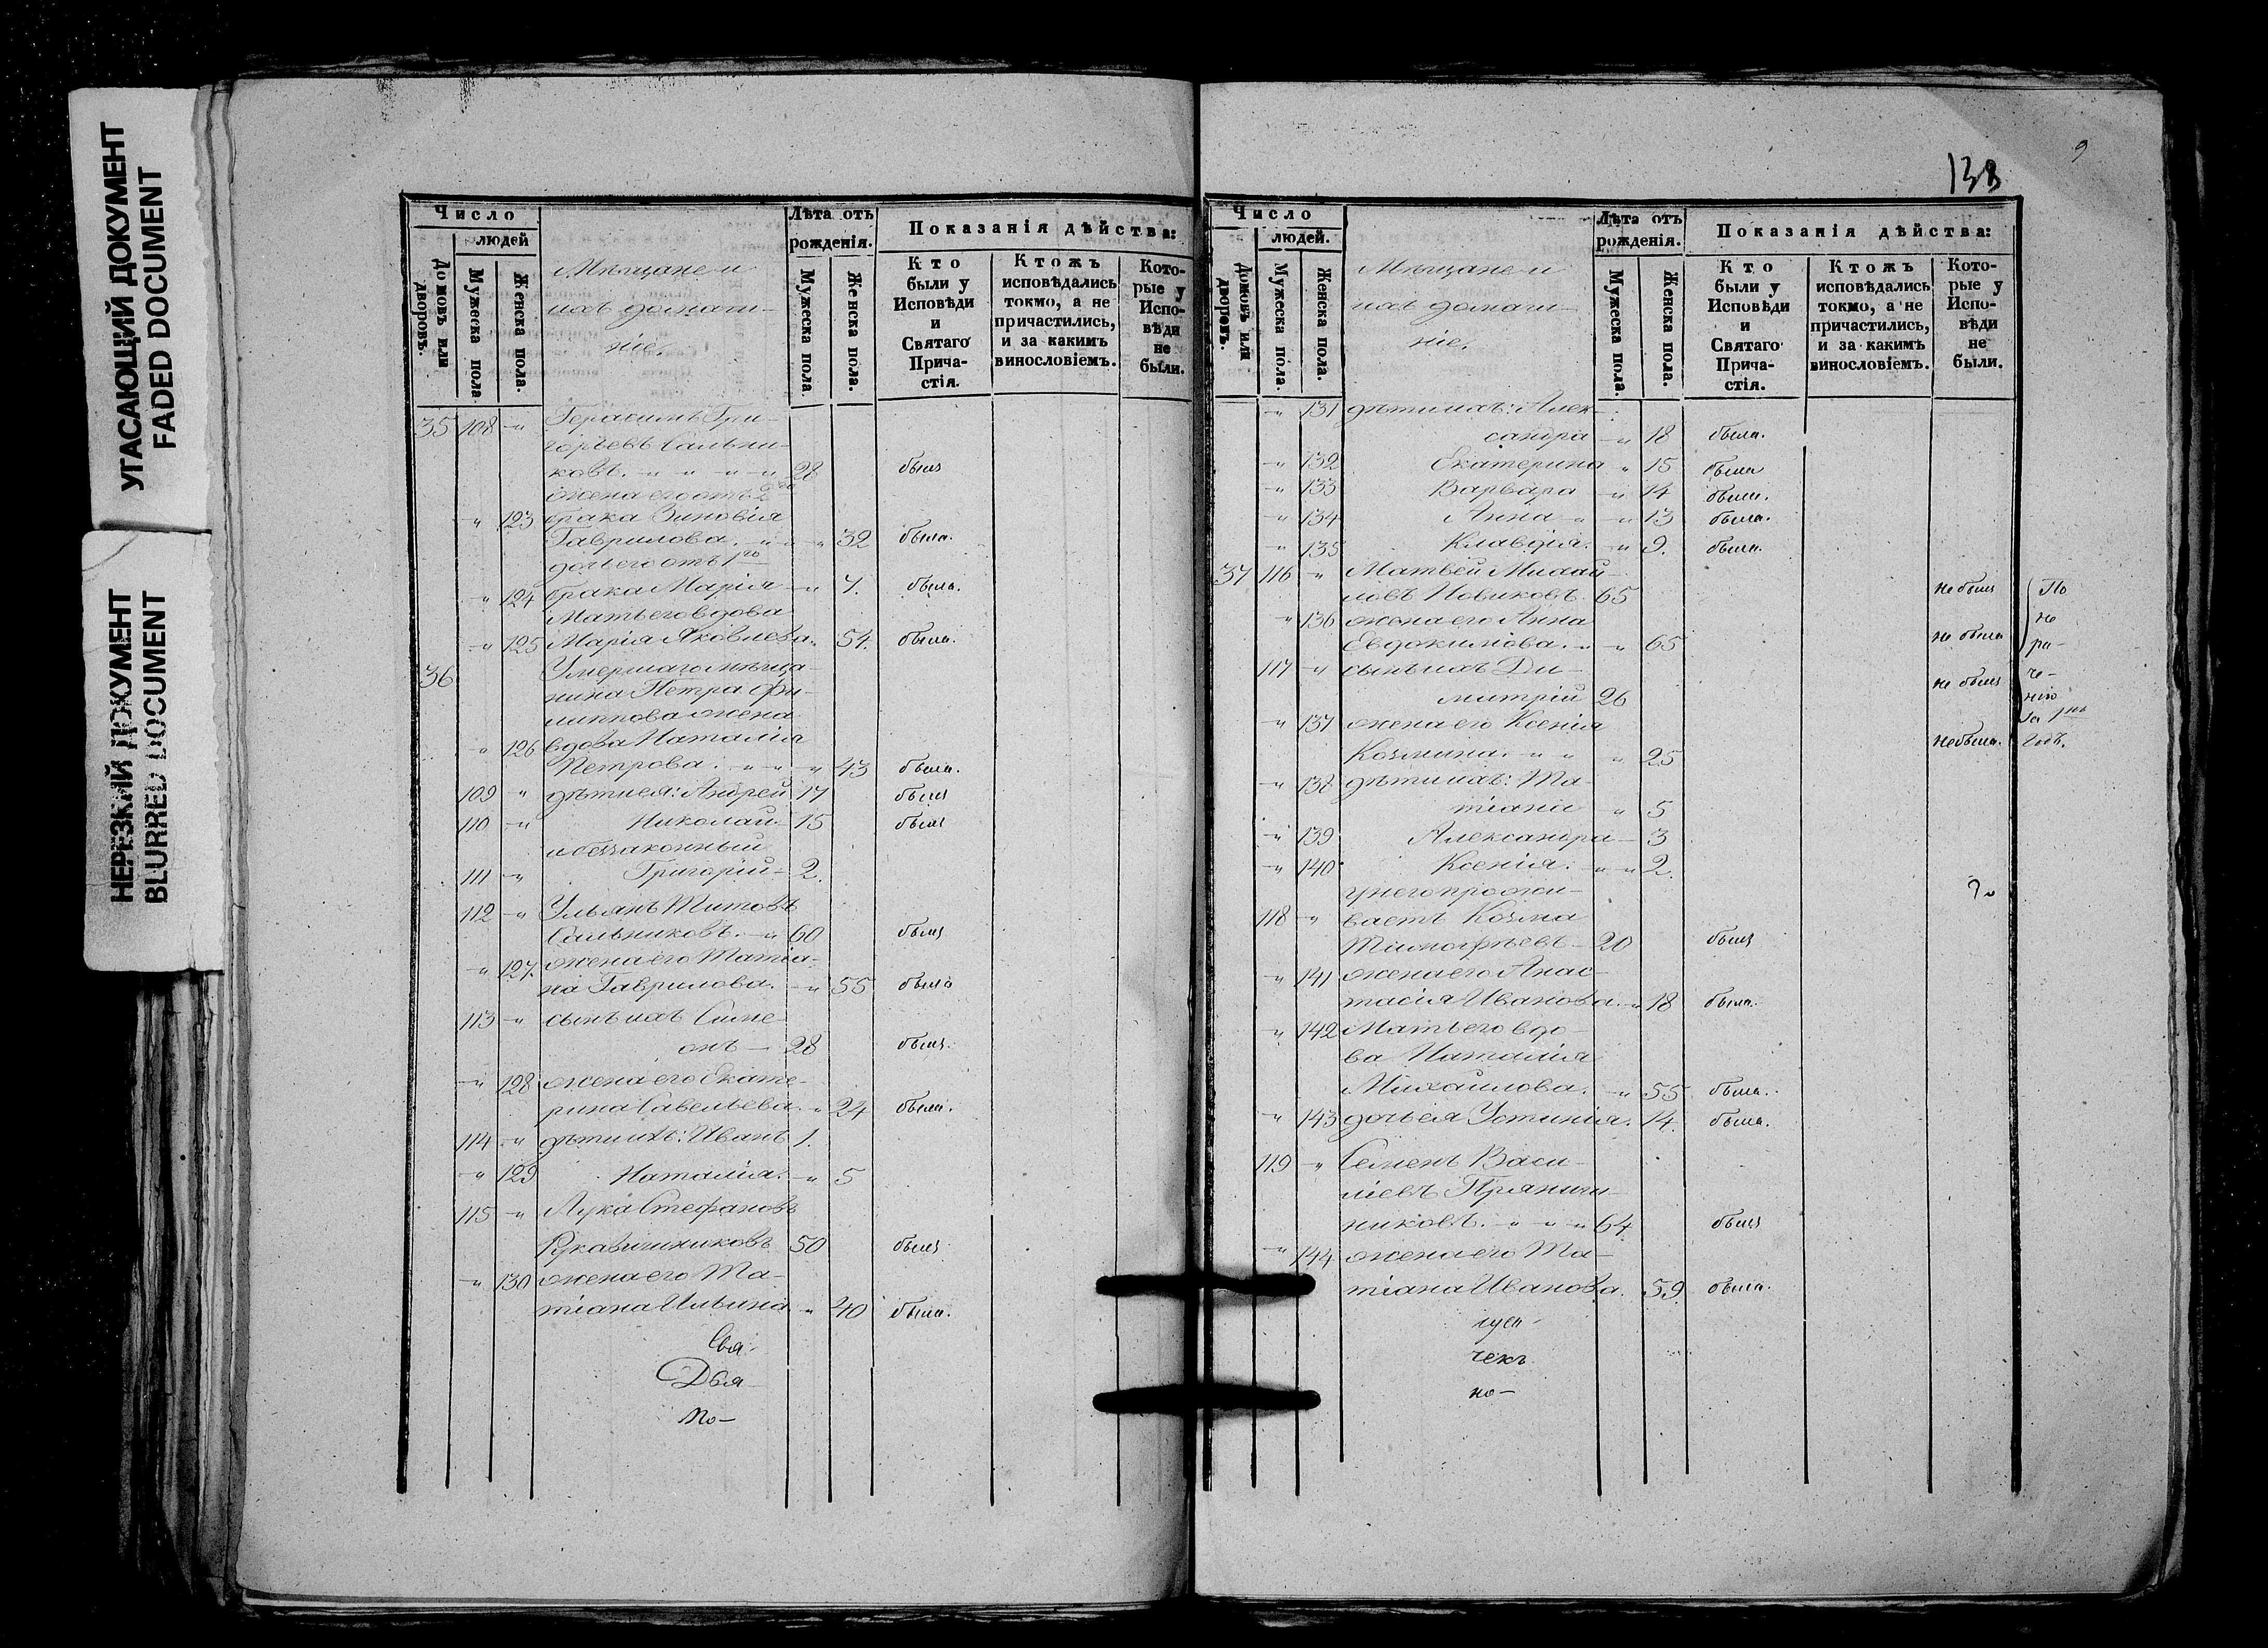 УГАСАЮЩИЙ ДОКУМЕНТ
FADED DOCUMENT
НЕРЕЗКИЙ ДОКУМЕНТ
BLURRED DOCUMENT
Число
людей
Домовъ или дворовъ.
Мужеска пола.
Женска пола.
Мѣщане и
ихъ домаш-
ніе.
Лѣта отъ
рожденія.
Мужеска пола
Женска пола.
Показанія дѣйства:
Кто
были у
Исповѣди
и
Святаго
Прича-
стія.
Ктожъ
исповѣдались
токмо, а не
причастились,
и за какимъ
винословіемъ.
Кото-
рые у
Испо-
вѣди
не
были.
35 108 " Герасимъ Гри-
горьевъ Сальни-
ковъ. " " " " 28 былъ
жена его отъ 2го
" 123 брака Зиновія
Гаврилова. " " " 32 была.
дочь его отъ 1го
" 124 брака Марія " 7. была.
Мать его вдова
" 125 Марія Яковлева. 54. была.
36 Умершаго мѣща-
нина Петра Фи-
липпова жена
" 126 вдова Наталія
Петрова. " " " 43 была.
109 " дѣти ея: Андрей 17 былъ
110 " Николай 15 былъ
и беззаконный
111 " Григорій 2.
112 " Ульянъ Титовъ
Сальниковъ. " 60 былъ
" 127. жена его Татіа-
на Гаврилова. " 55 была
113 " сынъ ихъ Симе-
онъ 28 былъ.
" 128 жена его Екате-
рина Савельева. " 24 была.
114 " дѣти ихъ: Иванъ 1.
" 129 Наталія. " 5
115 " Лука Стефановъ
Рукавишниковъ 50 былъ
" 130 жена его Та-
тіана Ильина " 40 была.
Свя-
Дья-
По-
138
9
Число
людей.
Домовъ или дворовъ.
Мужеска пола.
Женска пола.
Мѣщане и
ихъ домаш-
ніе.
Лѣта отъ
рожденія.
Мужеска пола
Женска пола.
Показанія дѣйства:
Кто
были у
Исповѣди
и
Святаго
Прича-
стія.
Ктожъ
исповѣдались
токмо, а не
причастились,
и за какимъ
винословіемъ.
Кото-
рые у
Испо-
вѣди
не
были.
" 131 дѣти ихъ: Алек-
сандра " 18 была.
" 132 Екатерина " 15 была
" 133 Варвара " 14 была.
" 134 Анна " " 13 была.
" 135 Клавдія. " 9. была.
37 116 " Матвей Михай-
ловъ Новиковъ 65 не былъ По
" 136 жена его Анна не
Евдокимова. " " 65 не была ра-
117 " сынъ ихъ Ди-
митрій 26 не былъ че-
нію
" 137 жена его Ксенія за 1й
Козмина. " " " 25 не была. годъ.
" 138 дѣти ихъ: Та-
тіана " 5
" 139 Александра 3
" 140 Ксенія. " " 2.
у него прожи-
118 " ваетъ Козма
Тимофѣевъ 20 былъ
" 141 жена его Анас-
тасія Иванова. " 18 была.
" 142 Мать его вдо-
ва Наталія
Михайлова. " 55 была.
" 143 дочь ея Устинія. 14. была.
119 " Семенъ Васи-
ліевъ Прянич-
никовъ. " " " 64 былъ
" 144 жена его Та-
тіана Иванова. 59. была.
но-